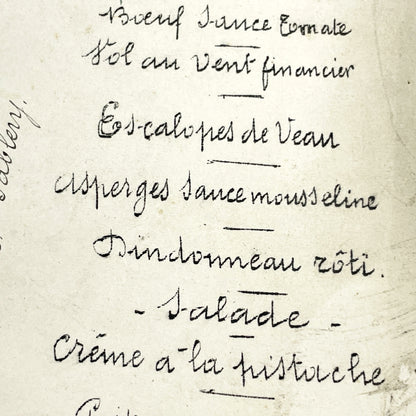 Bœuf Sauce Tomate
Vol au Vent financier
Escalopes de Veau
Asperges Sauce mousseline
Dindonneau rôti.
- Salade -
Crême à la pistache